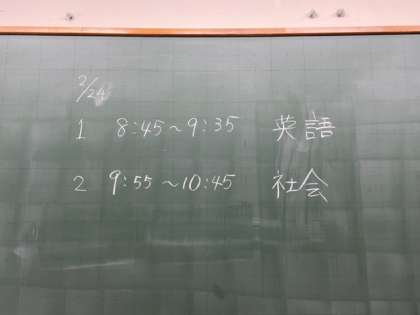 2/24
1 8:45~9:35 英語
2 9:55~10:45 社会